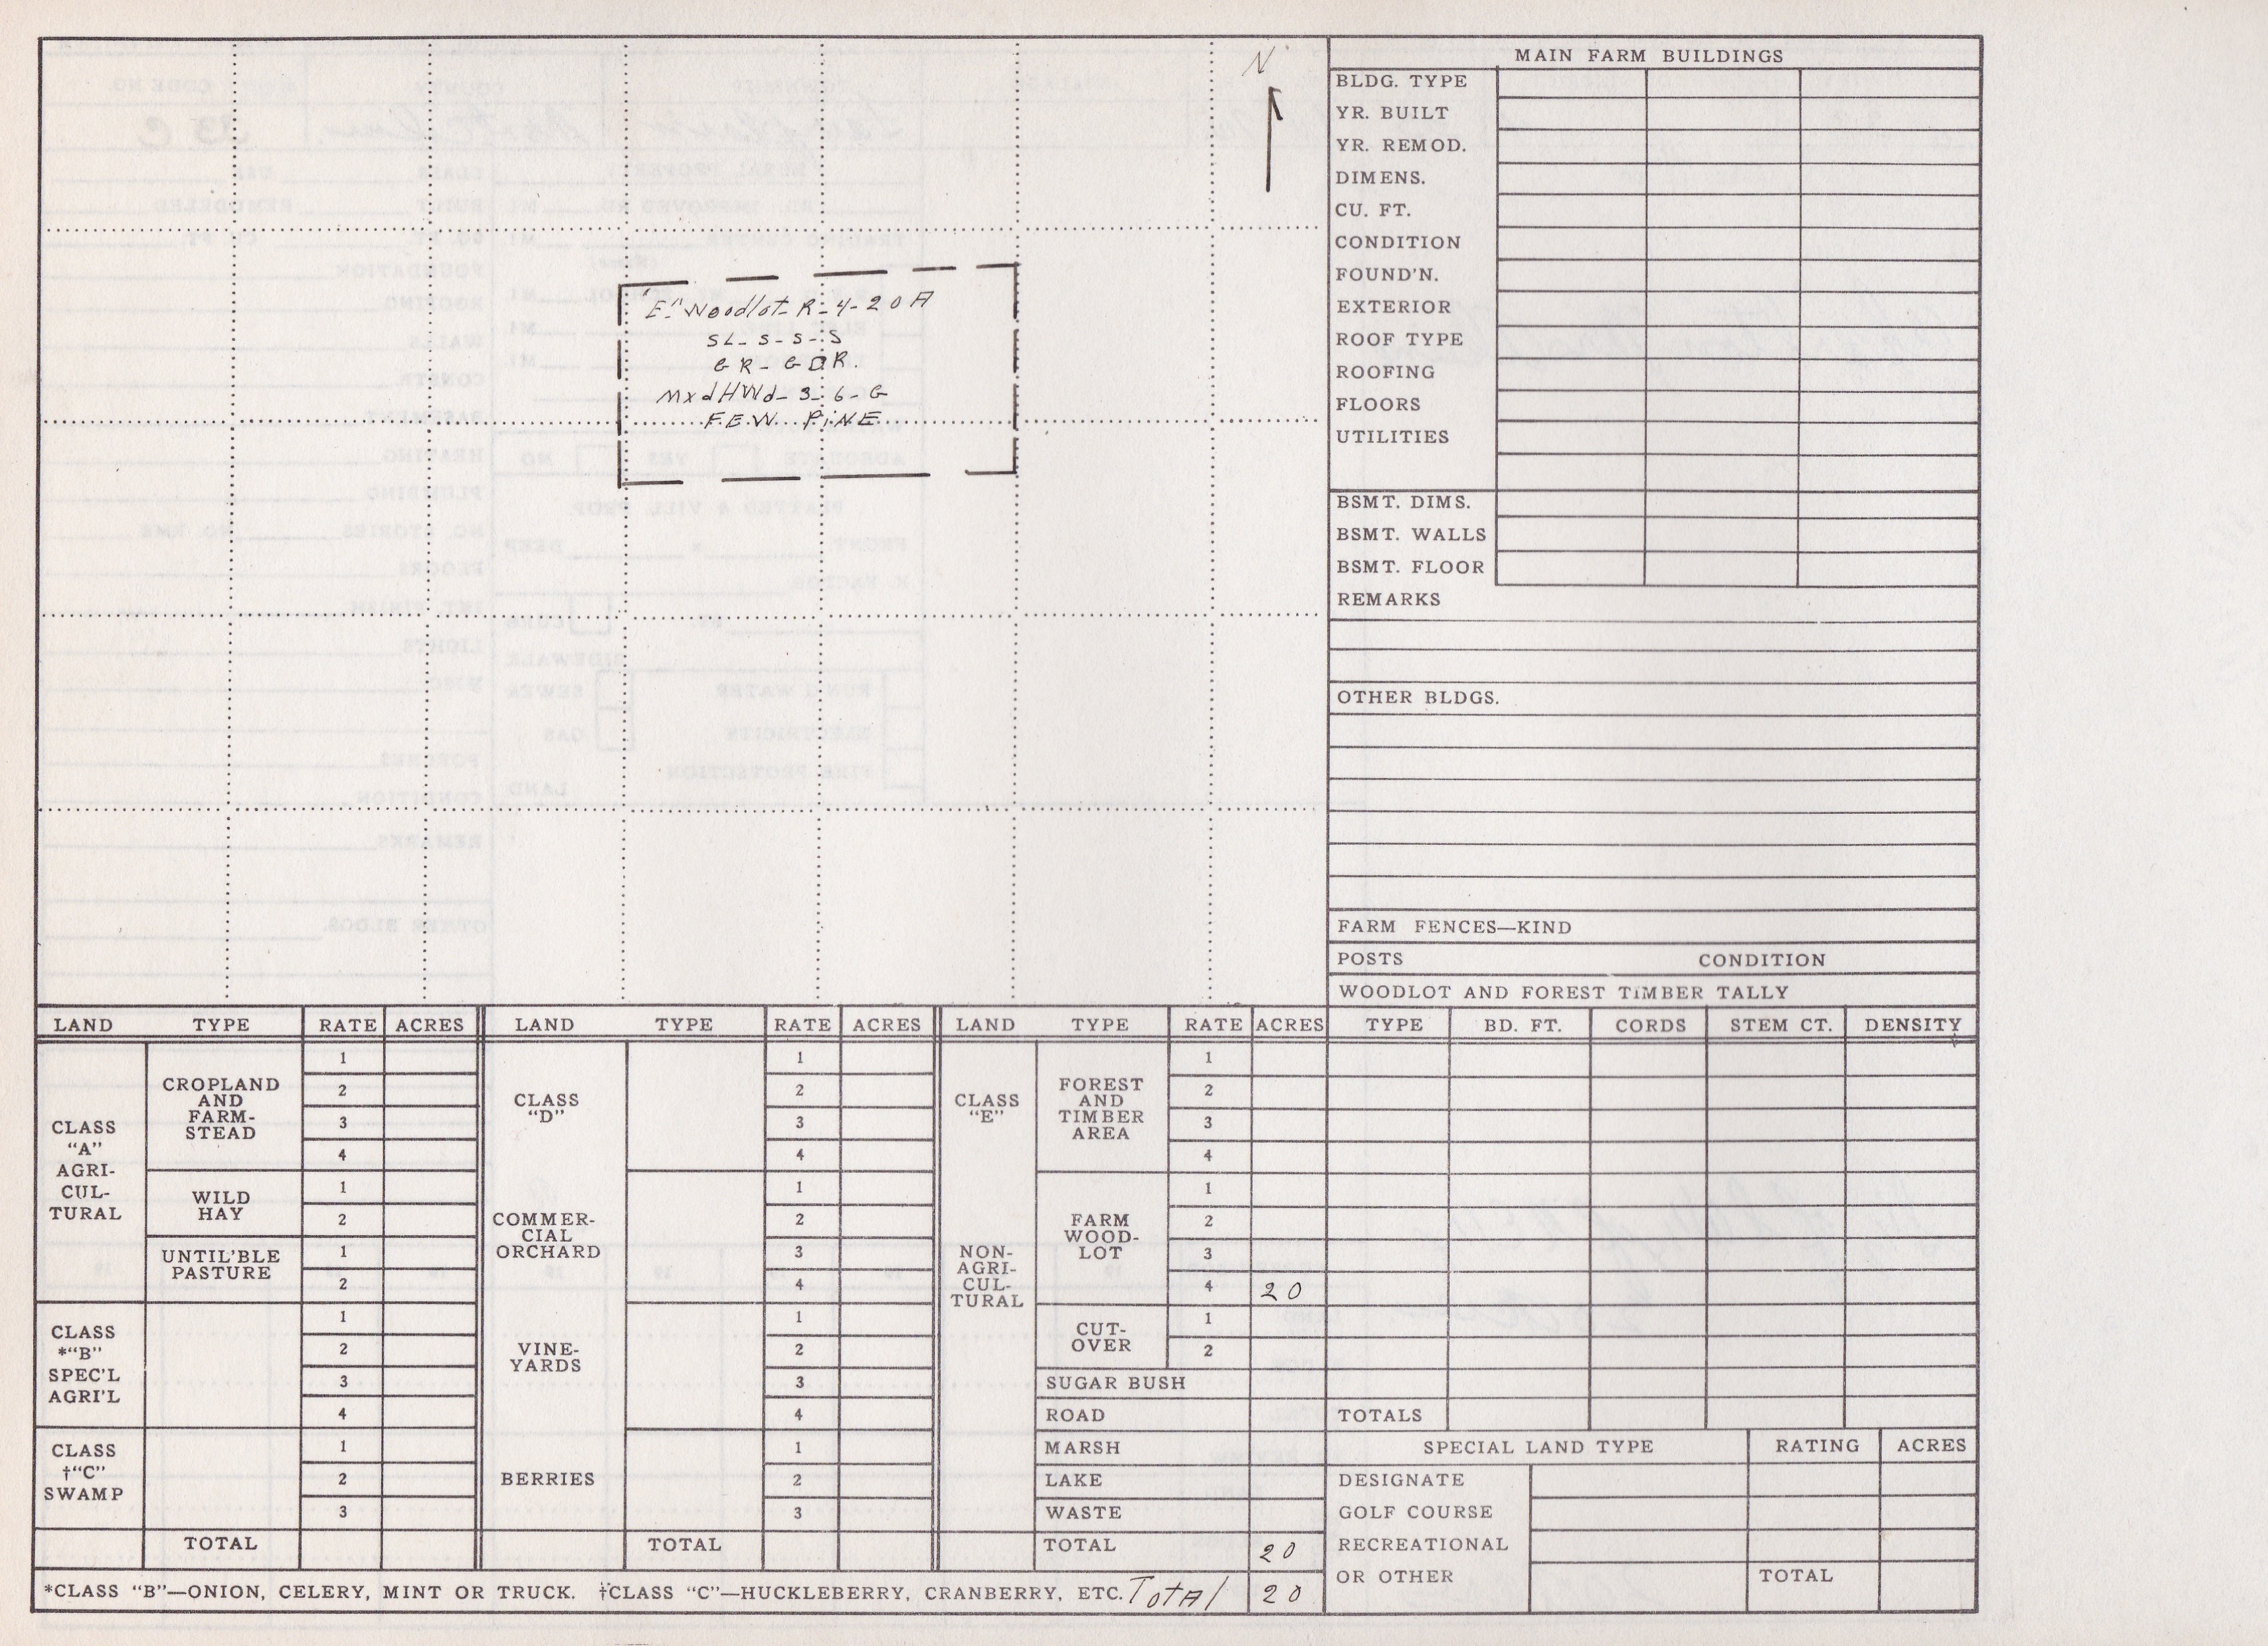 N
"E" Woodlot R-4-20A
SL-S-S-S
GR-GDR.
MxdHWd-3-6-G
FEW PINE
MAIN FARM BUILDINGS
BLDG. TYPE
YR. BUILT
YR. REMOD.
DIMENS.
CU. FT.
CONDITION
FOUND'N.
EXTERIOR
ROOF TYPE
ROOFING
FLOORS
UTILITIES
BSMT. DIMS.
BSMT. WALLS
BSMT. FLOOR
REMARKS
OTHER BLDGS.
FARM FENCES—KIND
POSTS CONDITION
WOODLOT AND FOREST TIMBER TALLY
LAND TYPE RATE ACRES LAND TYPE RATE ACRES LAND TYPE RATE ACRES TYPE BD. FT. CORDS STEM CT. DENSITY
CLASS
"A"
AGRI-
CUL-
TURAL
CROPLAND
AND
FARM-
STEAD
1
2
3
4
WILD
HAY
1
2
UNTIL'BLE
PASTURE
1
2
CLASS
*"B"
SPEC'L
AGRI'L
1
2
3
4
CLASS
†"C"
SWAMP
1
2
3
TOTAL
CLASS
"D"
1
2
3
4
COMMER-
CIAL
ORCHARD
1
2
3
4
VINE-
YARDS
1
2
3
4
BERRIES
1
2
3
TOTAL
CLASS
"E"
NON-
AGRI-
CUL-
TURAL
FOREST
AND
TIMBER
AREA
1
2
3
4
FARM
WOOD-
LOT
1
2
3
4 20
CUT-
OVER
1
2
SUGAR BUSH
ROAD
MARSH
LAKE
WASTE
TOTAL 20
TOTALS
SPECIAL LAND TYPE RATING ACRES
DESIGNATE
GOLF COURSE
RECREATIONAL
OR OTHER
TOTAL
*CLASS "B"—ONION, CELERY, MINT OR TRUCK. †CLASS "C"—HUCKLEBERRY, CRANBERRY, ETC. Total 20